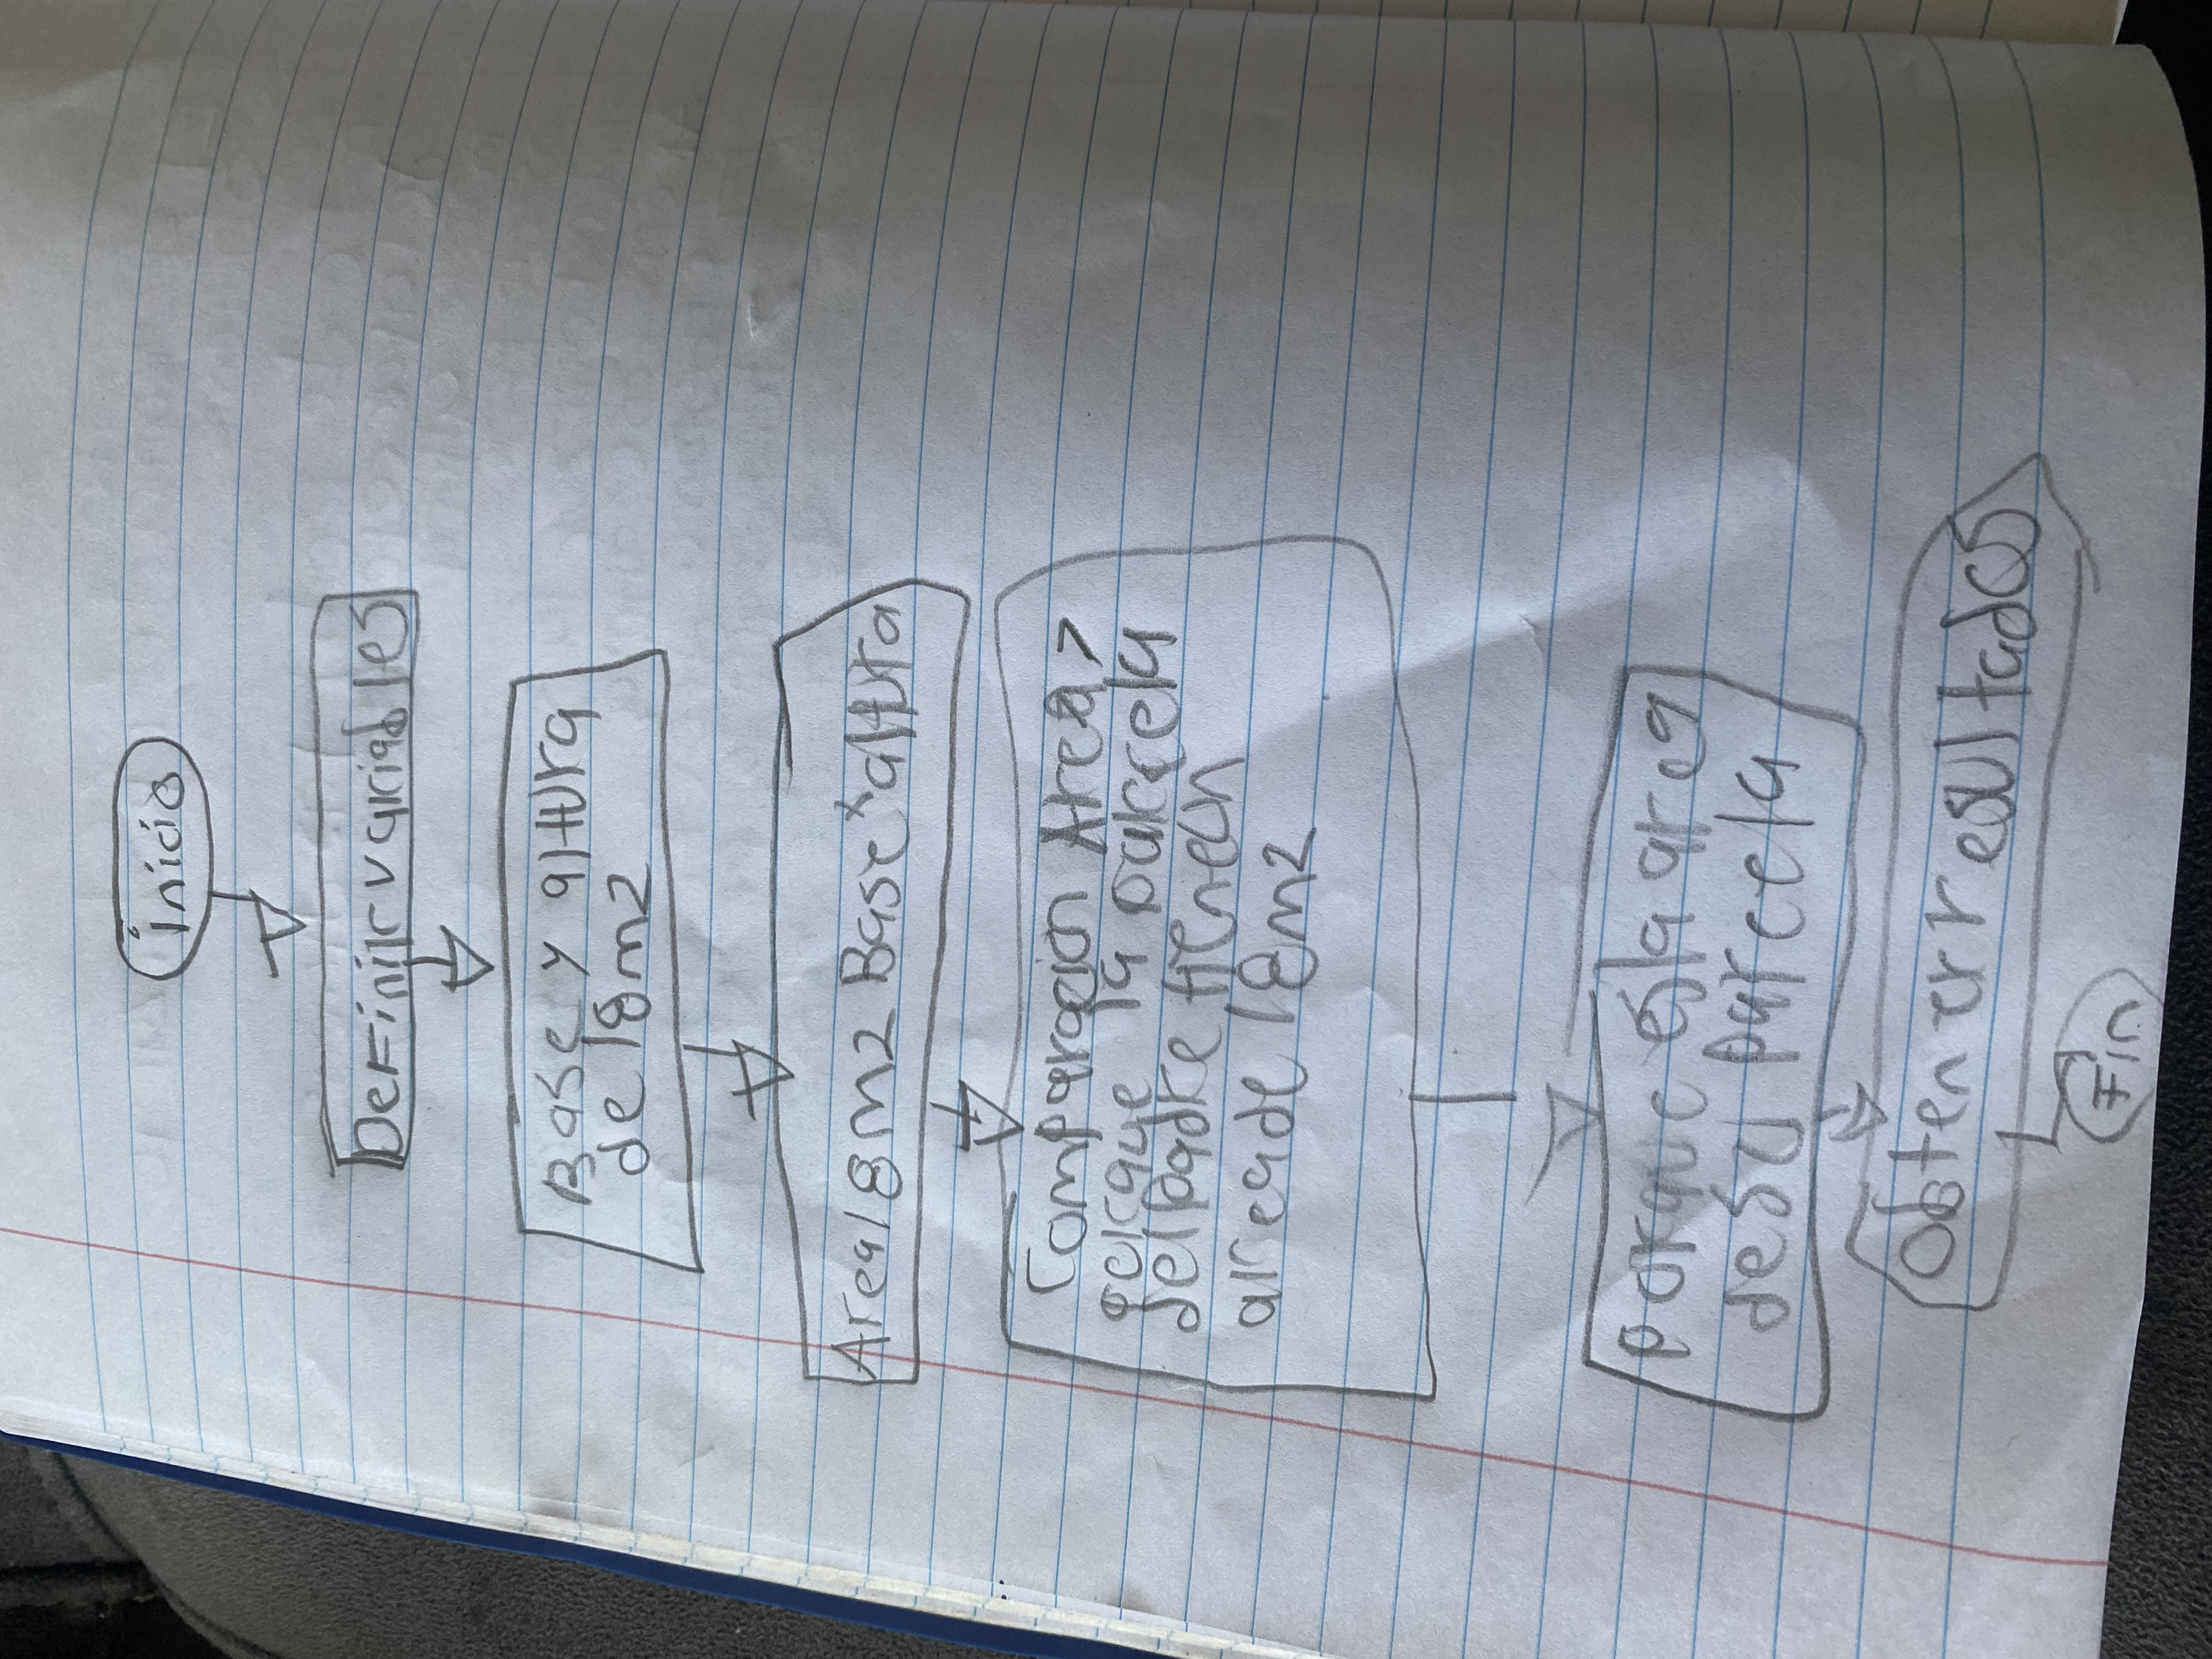 inicio
Definir variables
Base y altura
de 18m2
Area 18m2 Base x altura
Comparacion Area>
la parcela
del padre tienen
area de 18m2
porque es la area
de su parcela
Obtener resultados
Fin